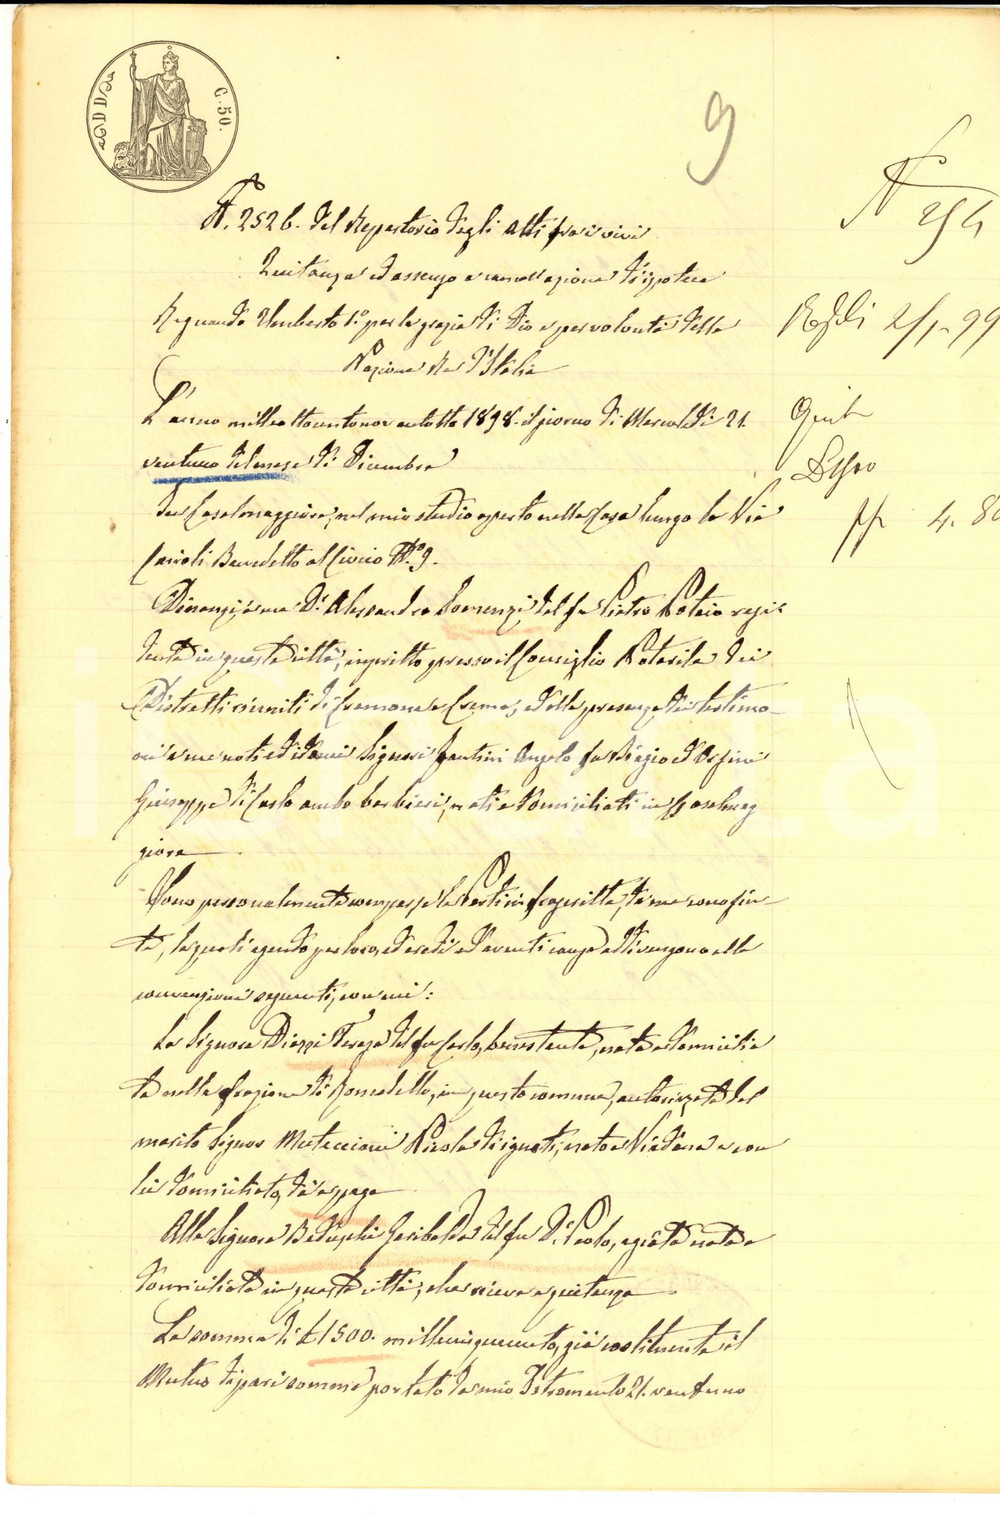 C. 50.
9
N 254
N. 2526. del Repertorio degli Atti fra i vivi
Quitanza ed assenso a cancellazione d'ipoteca
Regnando Umberto 1.º per la grazia di Dio e per volontà della
Nazione Re d'Italia
L'anno milleottocentonovantotto 1898. il giorno di Mercoldì 21.
ventuno del mese di Dicembre
In Casalmaggiore, nel mio studio aperto nella Casa lungo la Via
Cairoli Benedetto al Civico N.º 9.
Dinanzi a me D.r Alessandro del fu Pietro Notaio resi-
dente in questa città, inscritto presso il Consiglio Notarile dei
Distretti riuniti di Cremona e Crema, ed alla presenza dei testimo-
ni a me noti ed idonei Signori Fantini Angelo fu Biagio ed Orsini
Giuseppe di Carlo ambo barbieri, nati e domiciliati in Casalmag
giore
Sono personalmente comparse le Parti infrascritte, da me conosciu-
te, le quali agendo per loro, ed eredi ed aventi causa addivengono alle
convenzioni seguenti, con cui:
La Signora Diazzi Teresa del fu Carlo, benestante, nata e domicilia
ta nella frazione di Roncadello, in questo comune, autorizzata dal
marito Signor Nicola nato a Viadana e con
lei domiciliato, dà e paga
Alla Signora Garibalda del fu D.r Paolo, agiata nata e
domiciliata in questa città, che riceve e quitanza
La somma di £ 1500. millecinquecento, già costituente il
Mutuo di pari somma portato da mio Istromento 21. ventuno
2/1 99
Quit
4. 80